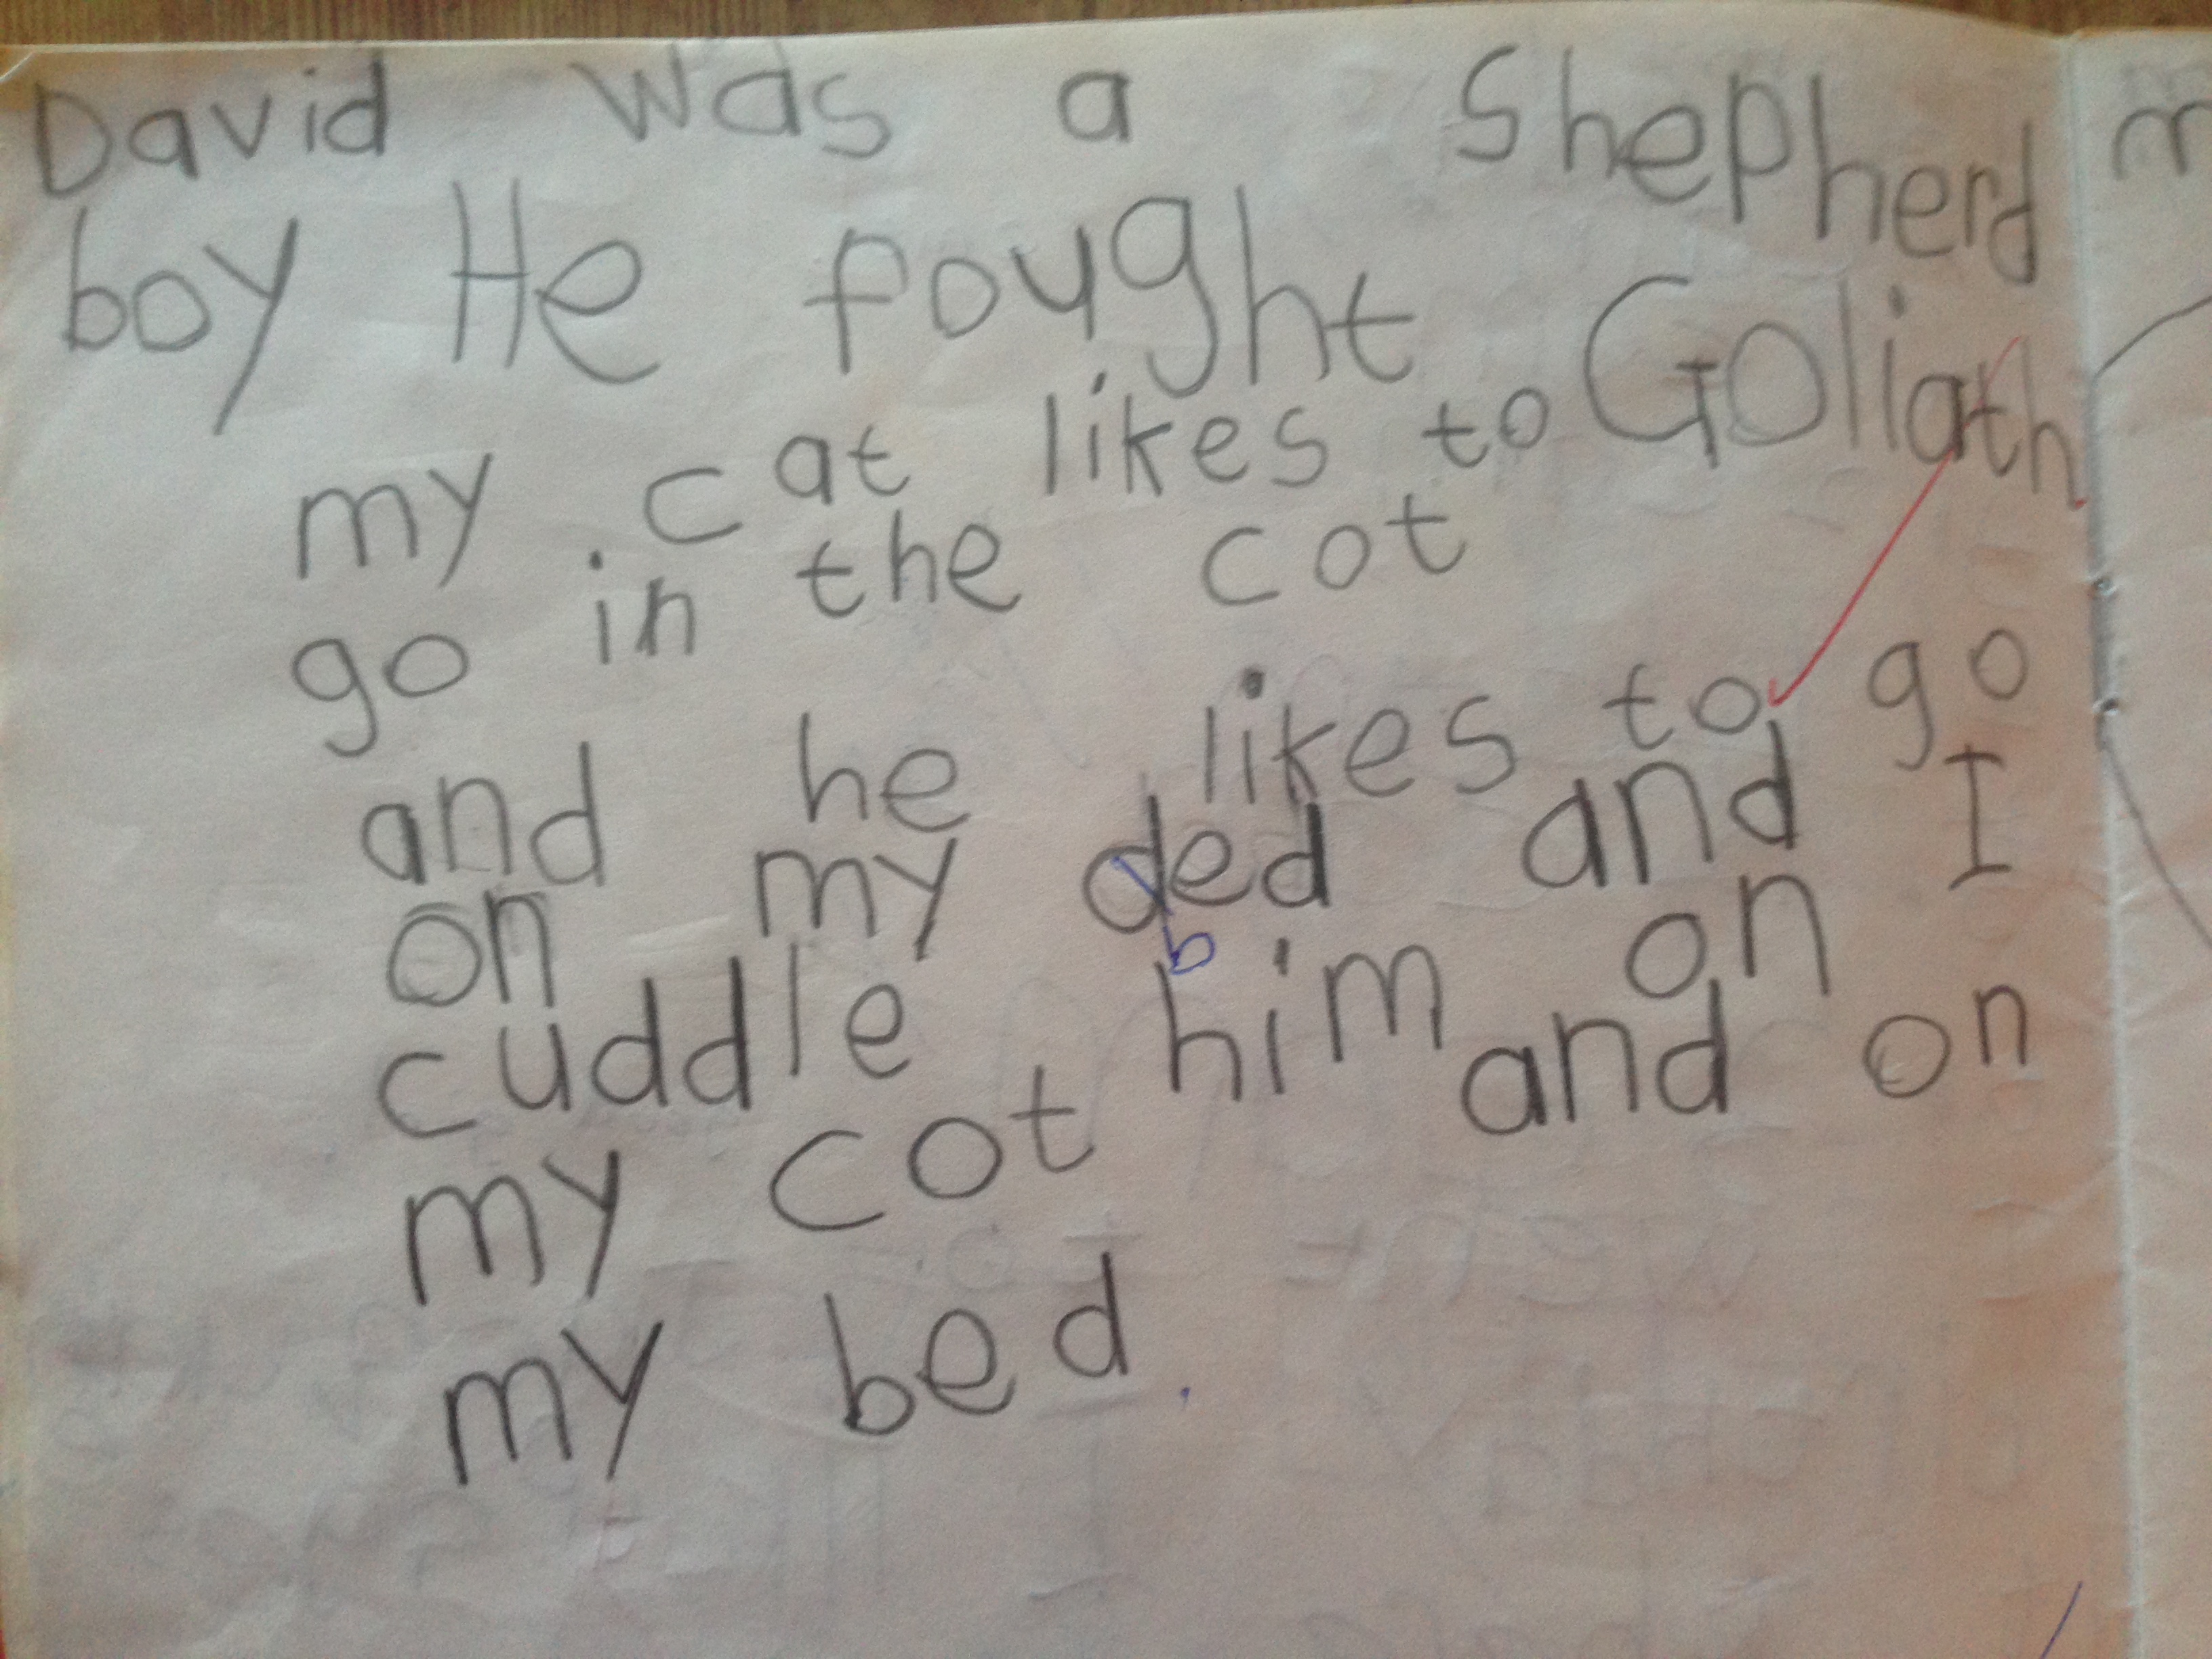 David was a Shepherd
boy He fought Goliath
my cat likes to
go in the cot
and he likes to go
on my ded and I
b
cuddle him on
my cot and on
my bed.